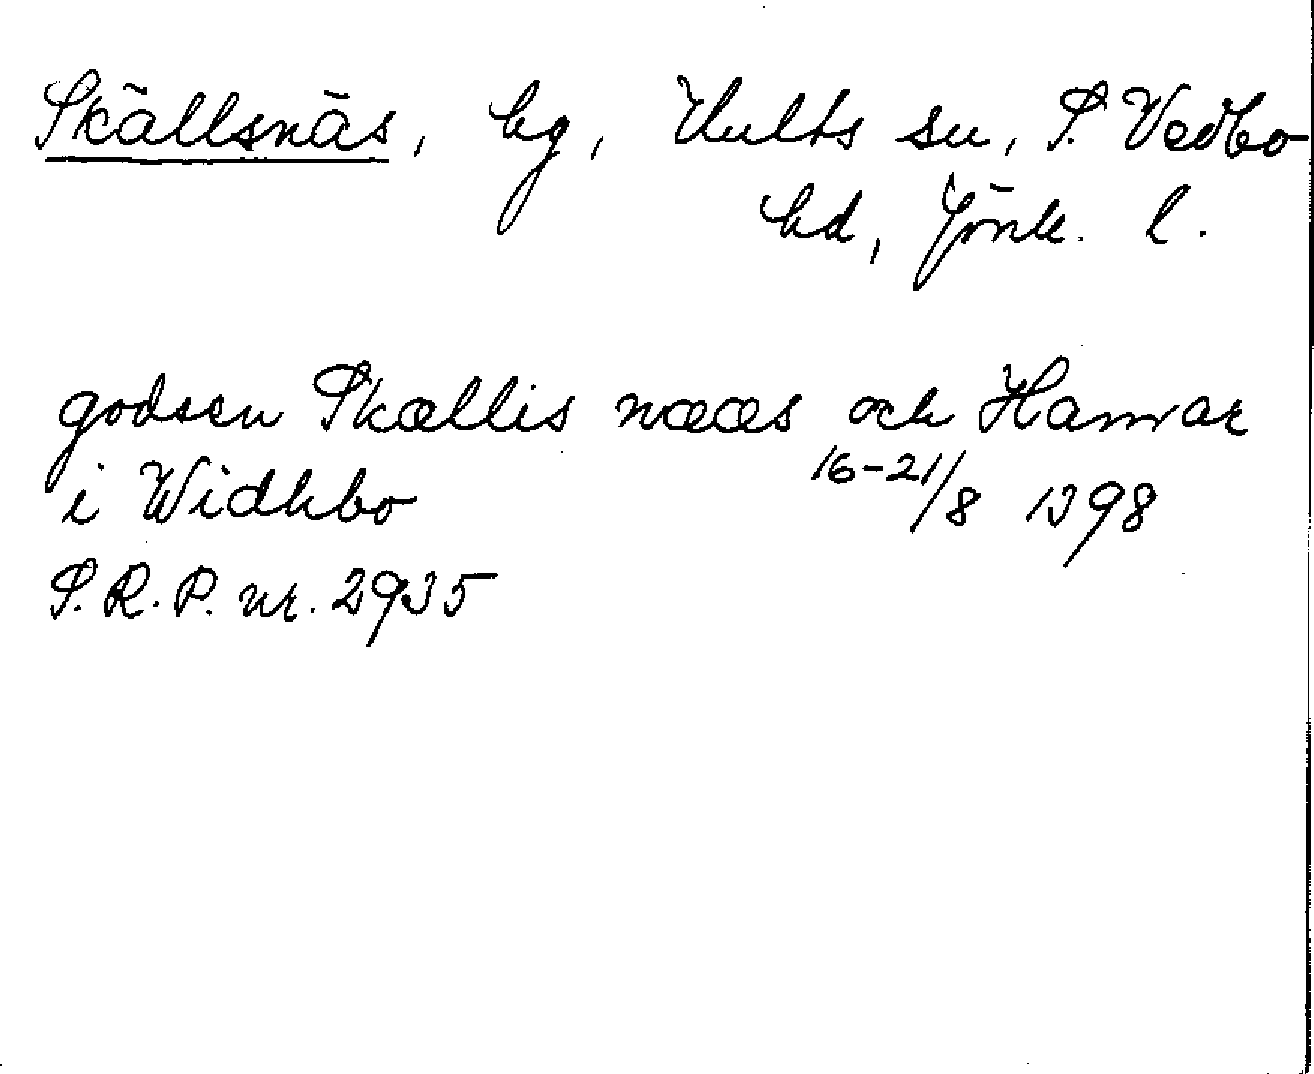 Skällsnäs, hg, Hults sn, S. Vedbo
hd, Jönk. l.
godsen Skællis nææs och Hamrar
i Widhbo 16-21/8 1398
S.R.P. nr. 2935